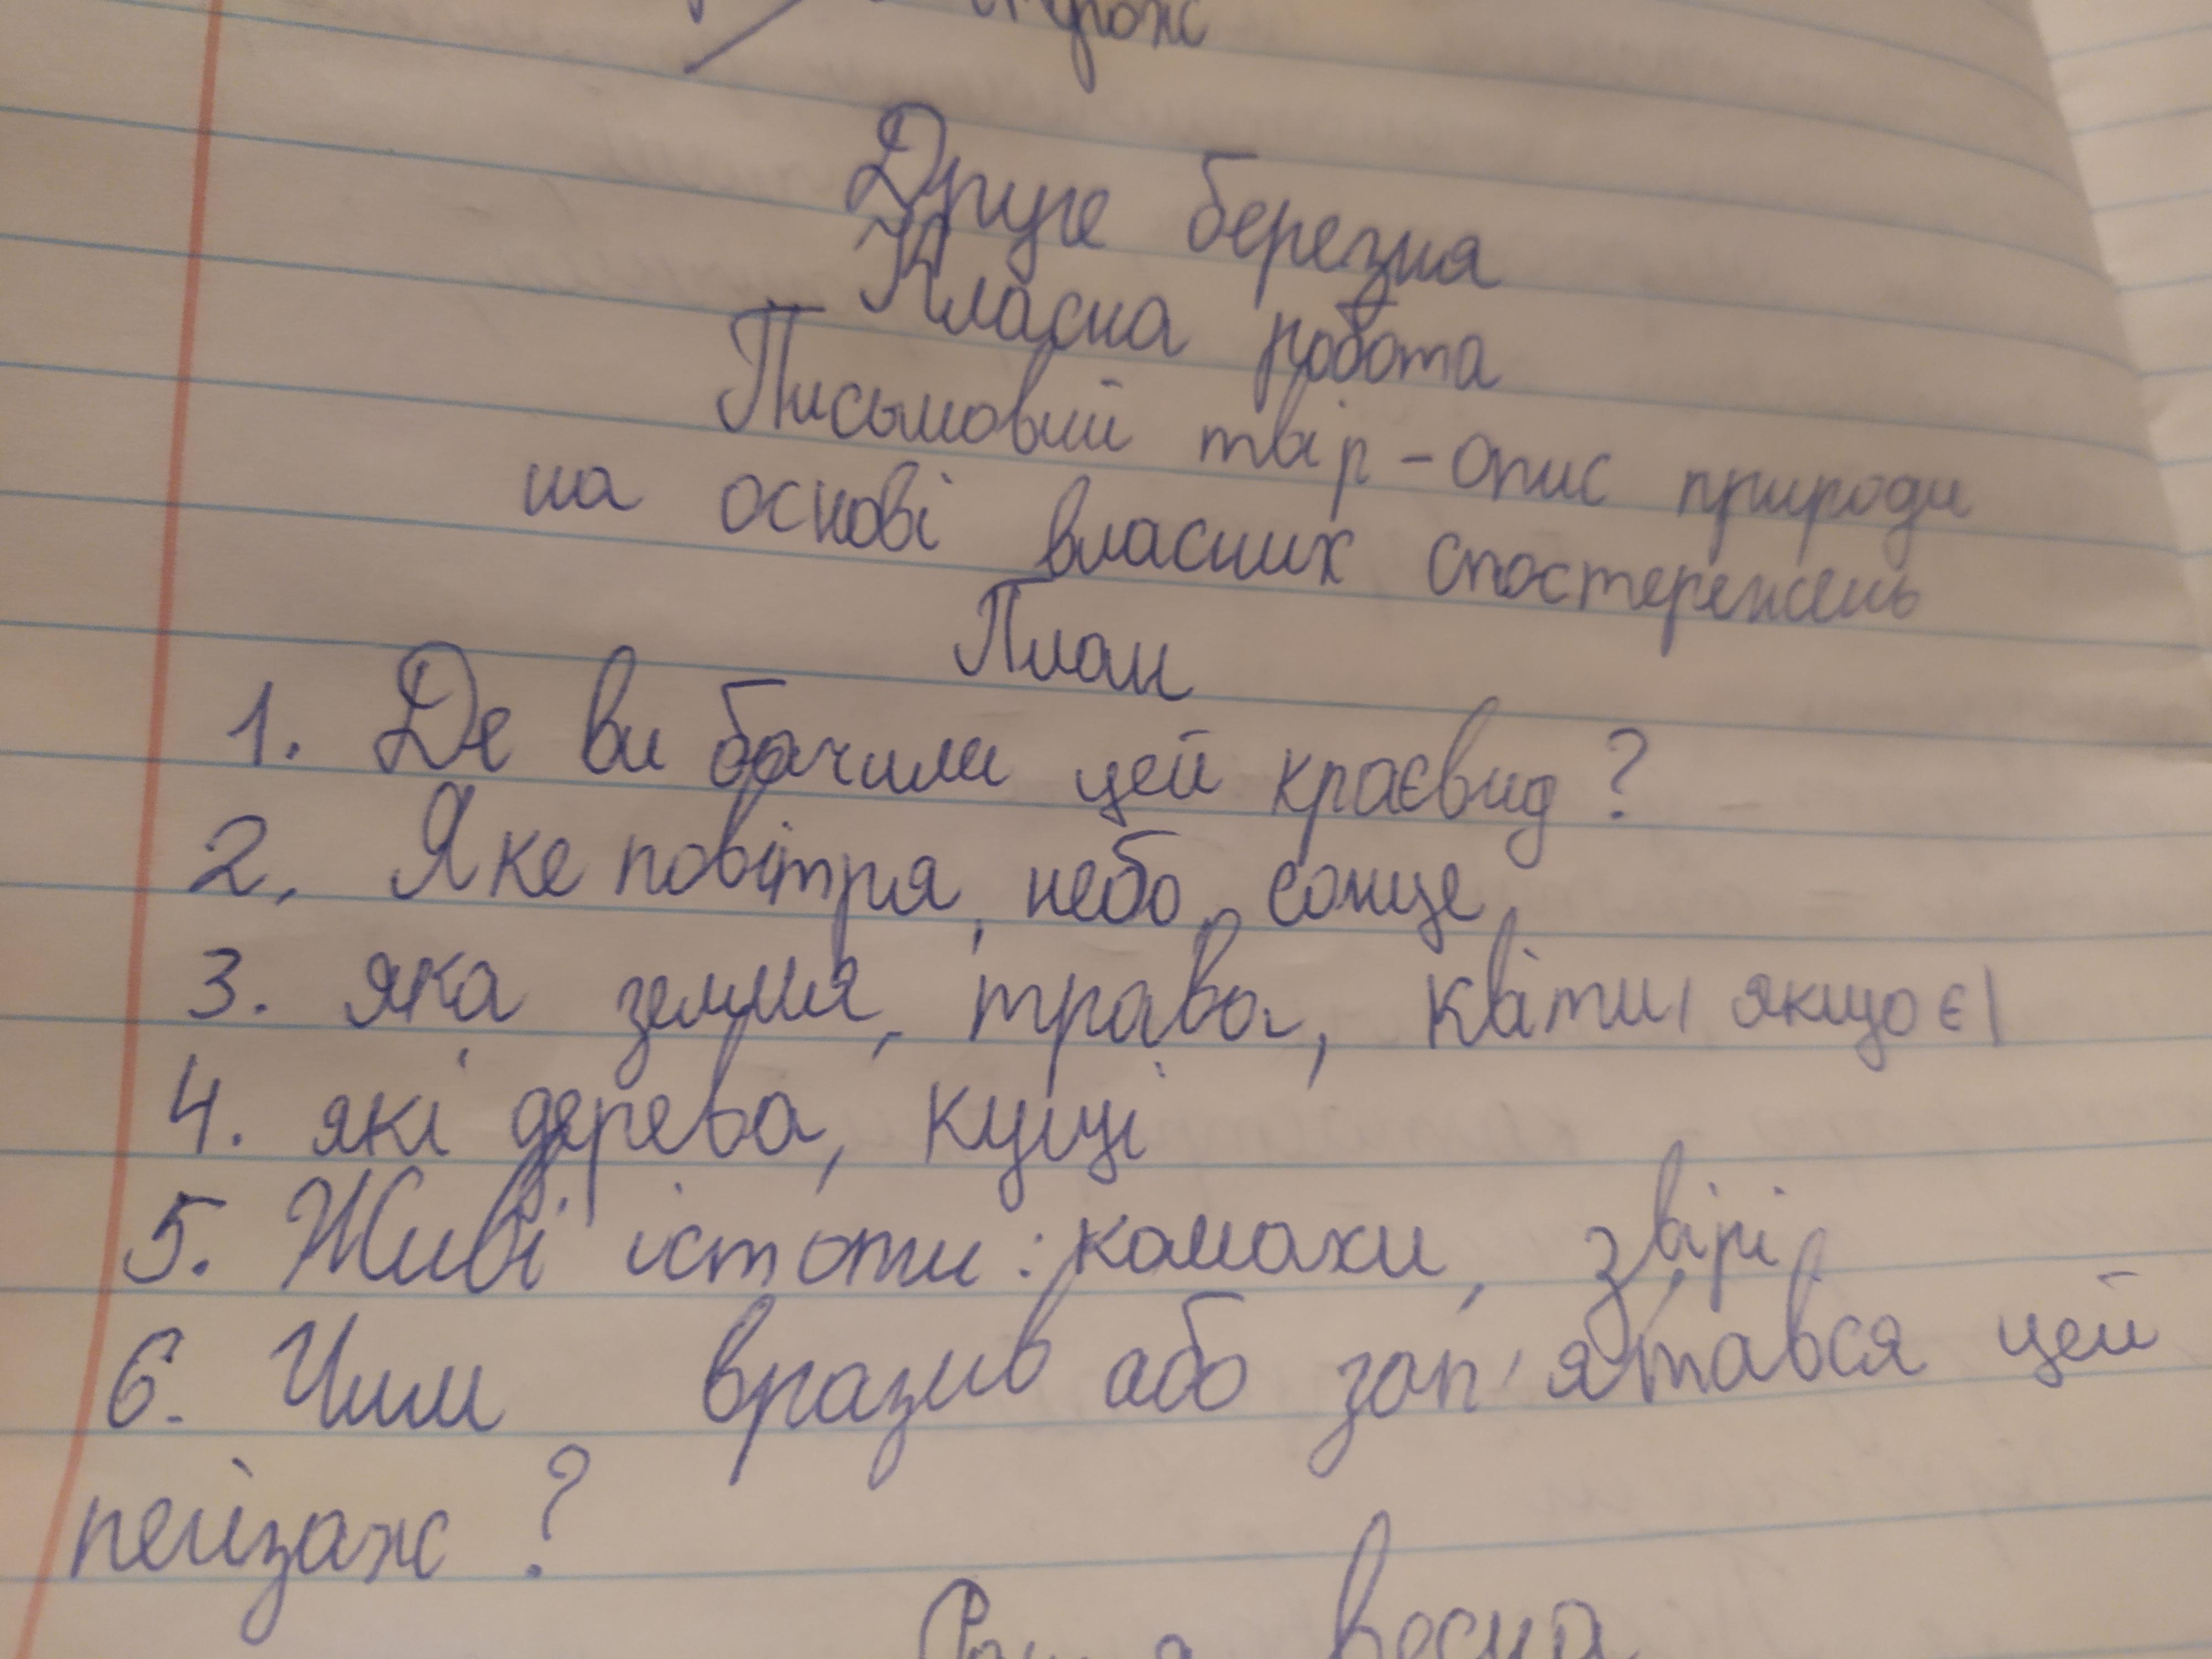 Друге березня
Класна робота
Письмовий твір - опис природи
на основі власних спостережень
План
1. Де ви бачили цей краєвид?
2. Яке повітря, небо, сонце,
3. яка земля, трава, квіти, якщо є)
4. які дерева, кущі
5. Живі істоти: комахи, звірі
6. Чим вразив або зап'ятався цей
пейзаж?
весна